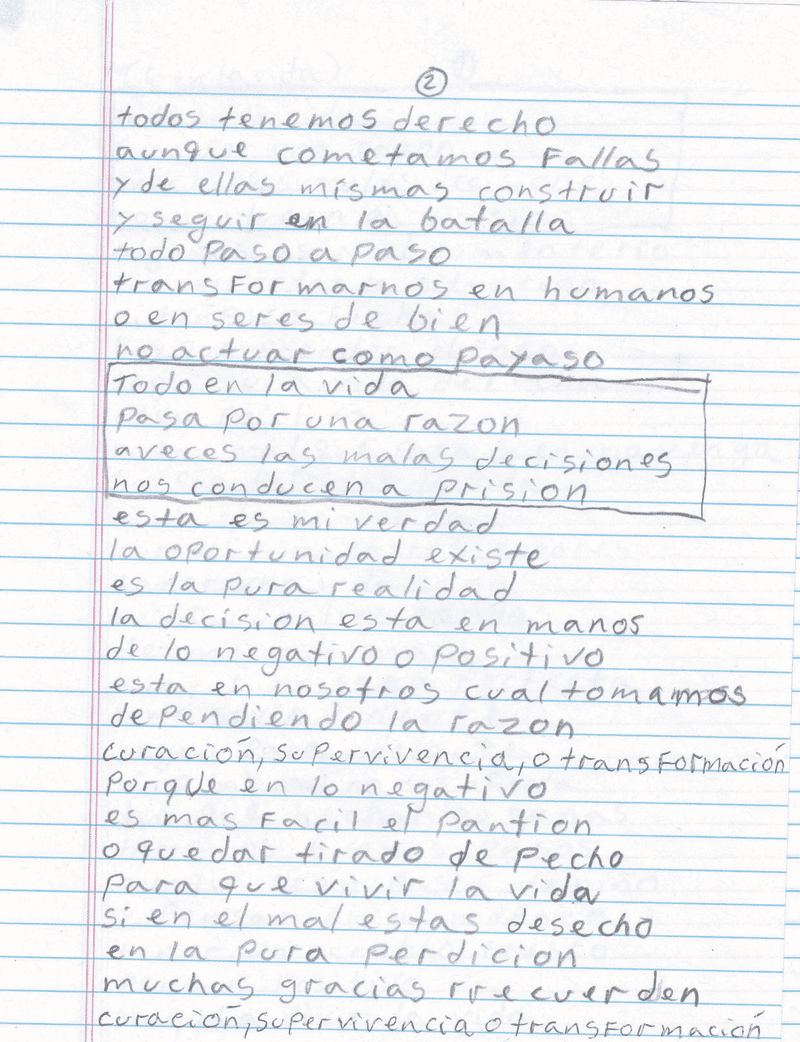 2
todos tenemos derecho
aunque cometamos Fallas
y de ellas mismas construir
y seguir en la batalla
todo paso a paso
transFormarnos en humanos
o en seres de bien
no actuar como payaso
Todo en la vida
pasa por una razon
aveces las malas decisiones
nos conducen a prision
esta es mi verdad
la oportunidad existe
es la pura realidad
la decision esta en manos
de lo negativo o positivo
esta en nosotros cual tomamos
dependiendo la razon
curación, supervivencia, o transFormación
porque en lo negativo
es mas Facil el pantion
o quedar tirado de pecho
para que vivir la vida
si en el mal estas desecho
en la pura perdicion
muchas gracias rrecuerden
curación, supervivencia o transFormación